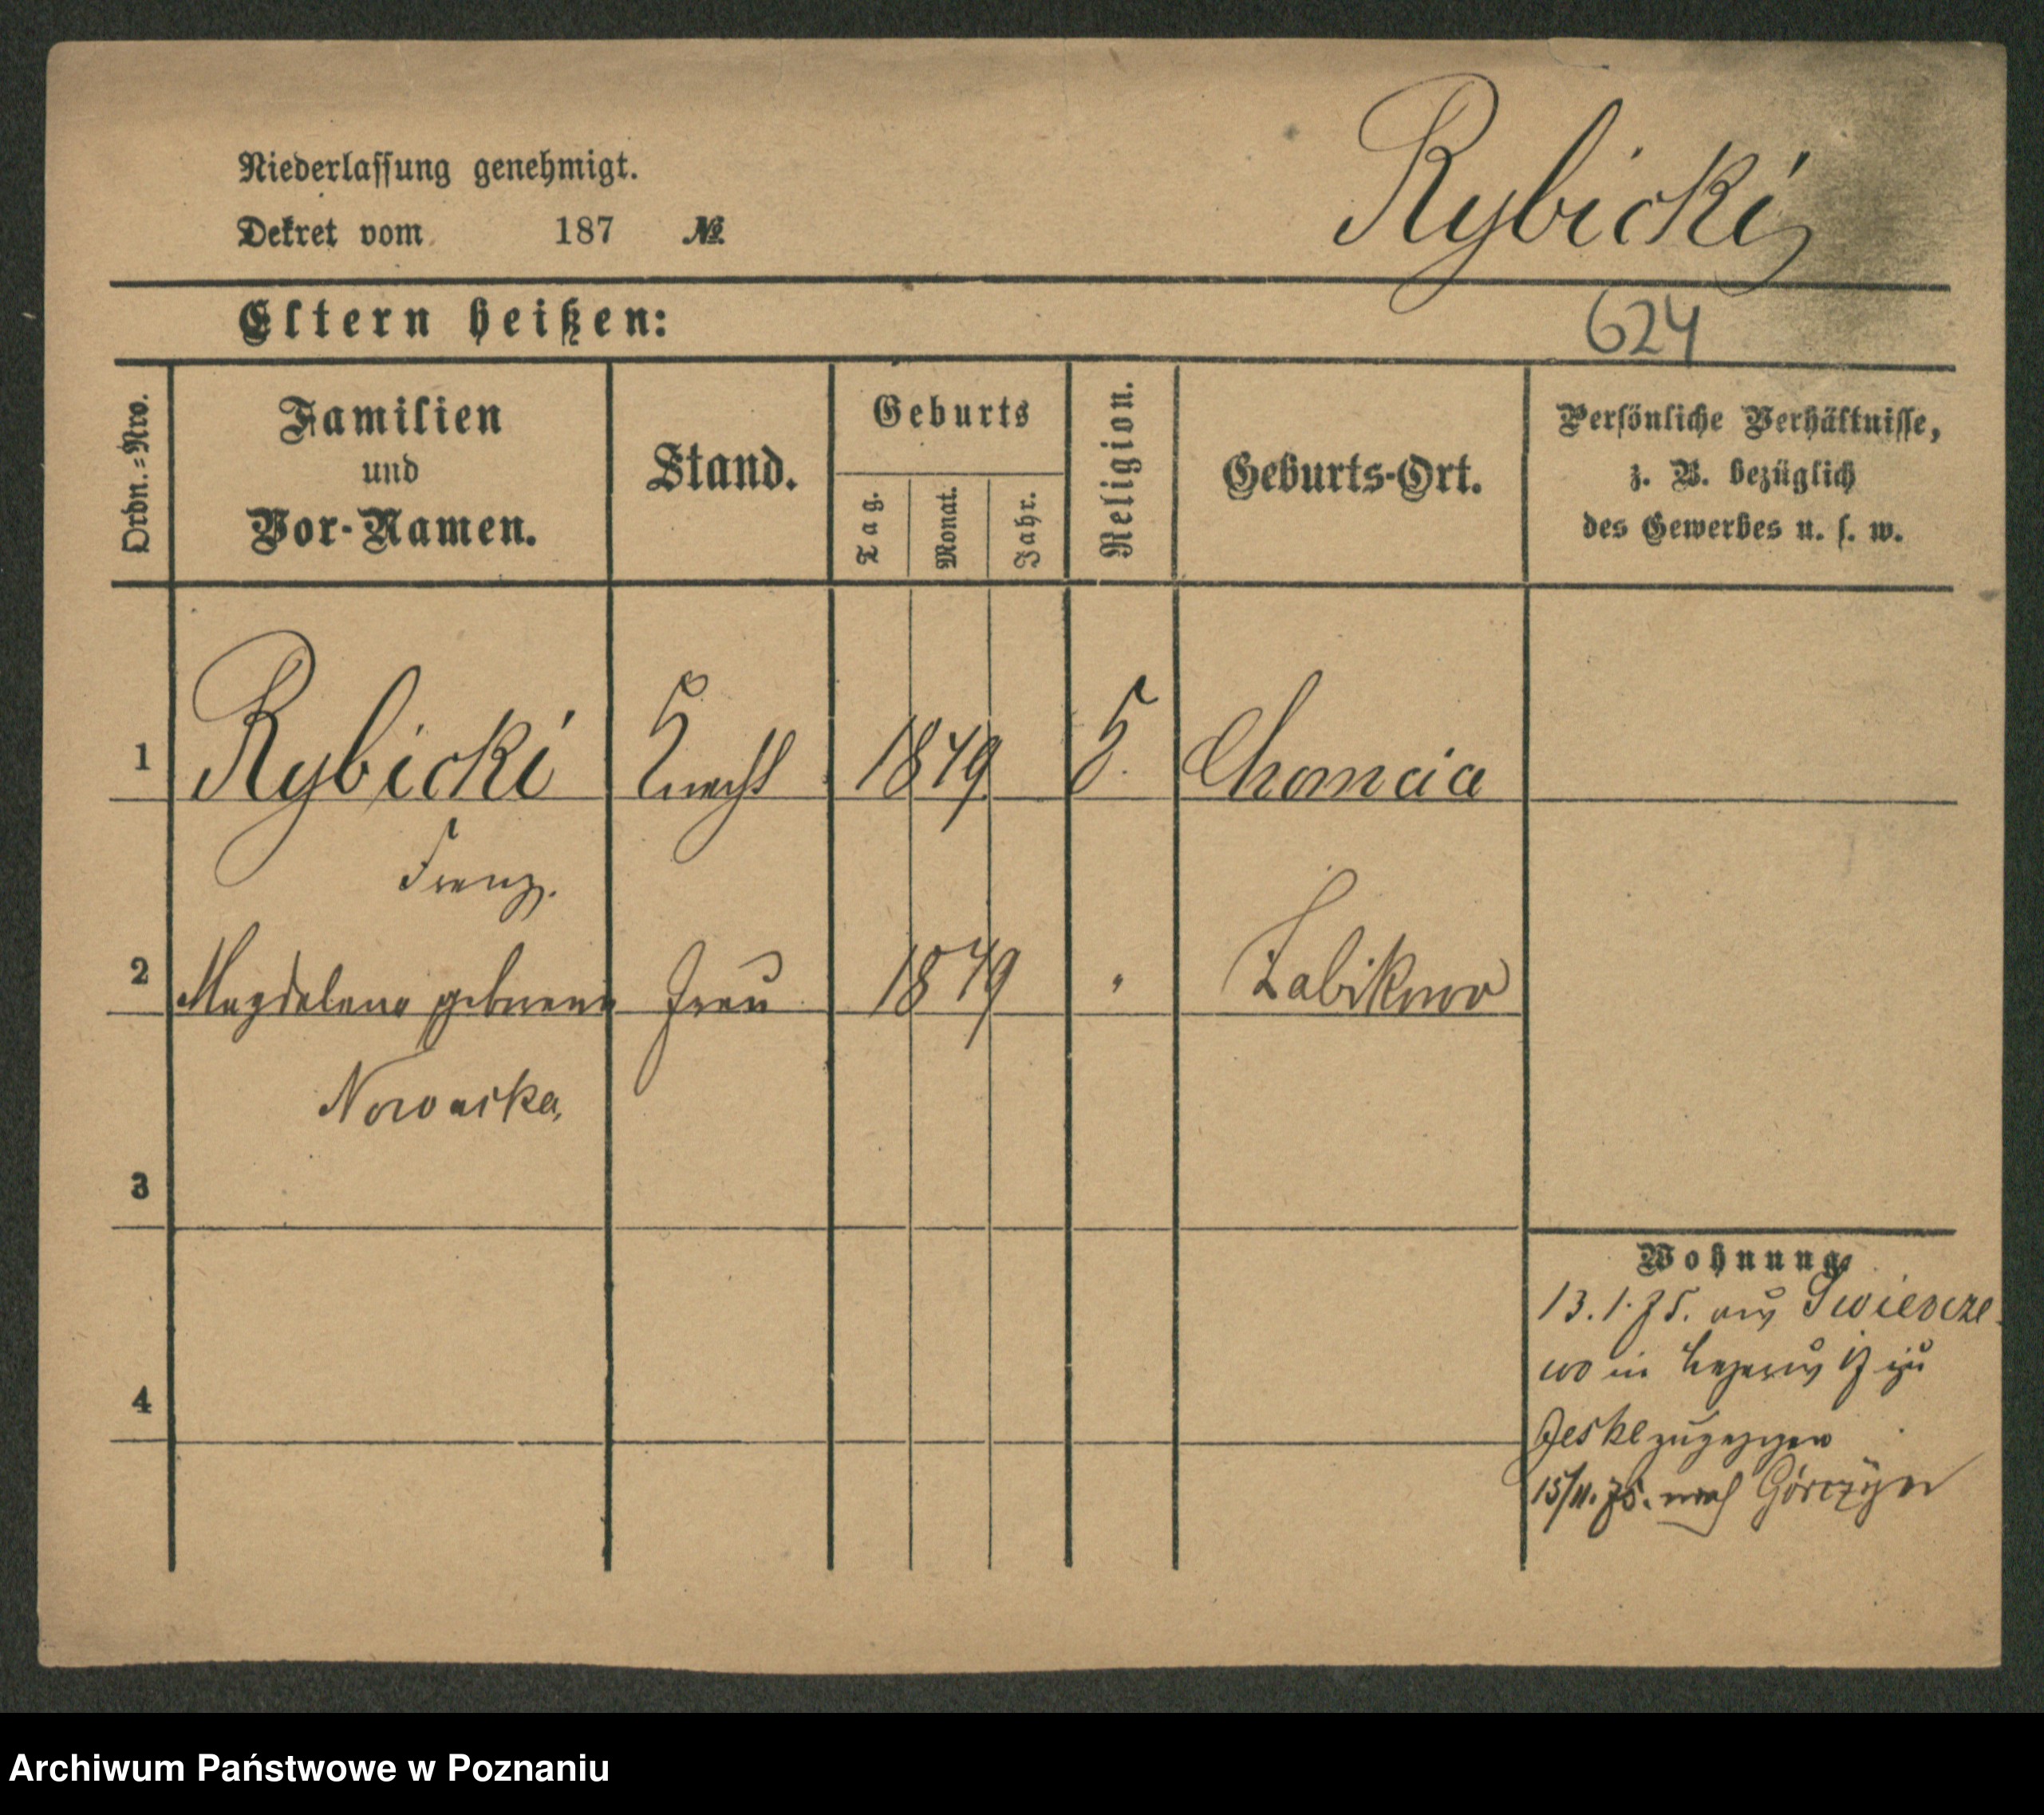 Rybicki
Niederlassung genehmigt.
Dekret vom 187 №
Eltern heißen:
624
Ordn.=Nro.
Familien
und
Vor-Namen.
Stand.
Geburts
Tag.
Monat.
Jahr.
Religion.
Geburts-Ort.
Persönliche Verhältnisse,
z. B. bezüglich
des Gewerbes u. s. w.
1 Rybicki Knecht 1849 K. Chomcia
Franz.
2 Magdalena geborene Frau 1849 " Zabikowo
Nowacka,
3
Wohnung
13.1.75. aus Swiercze
wo in zu
4
Jeske zugezogen
15/11.75. nach Górczyn
Archiwum Państwowe w Poznaniu